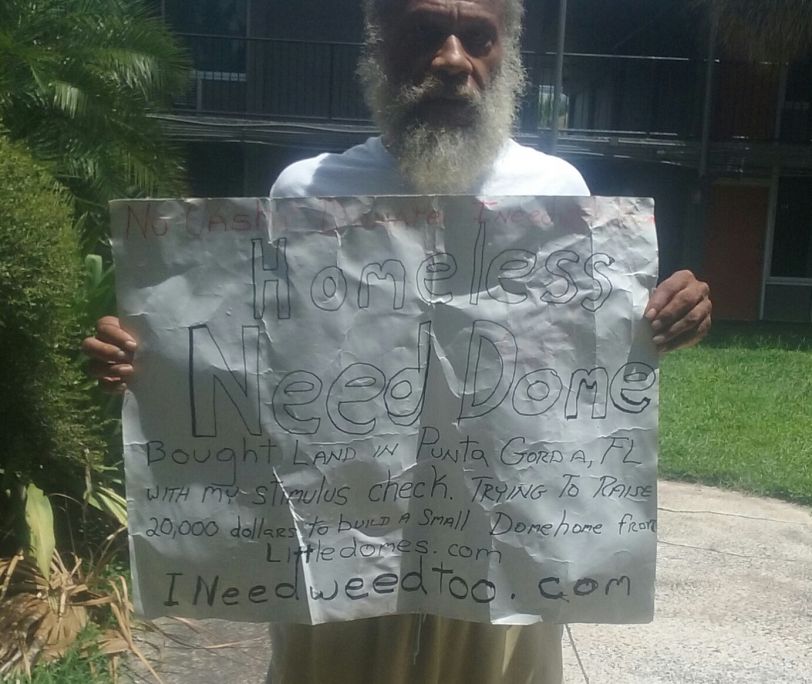 No Cash
Homeless
Need Dome
Bought LAND IN PUNTA GORDA, FL
WITH my stimulus check. TRYING TO RAISE
20,000 dollars to build A Small Domehome from
Littledomes.com
I Needweedtoo.com